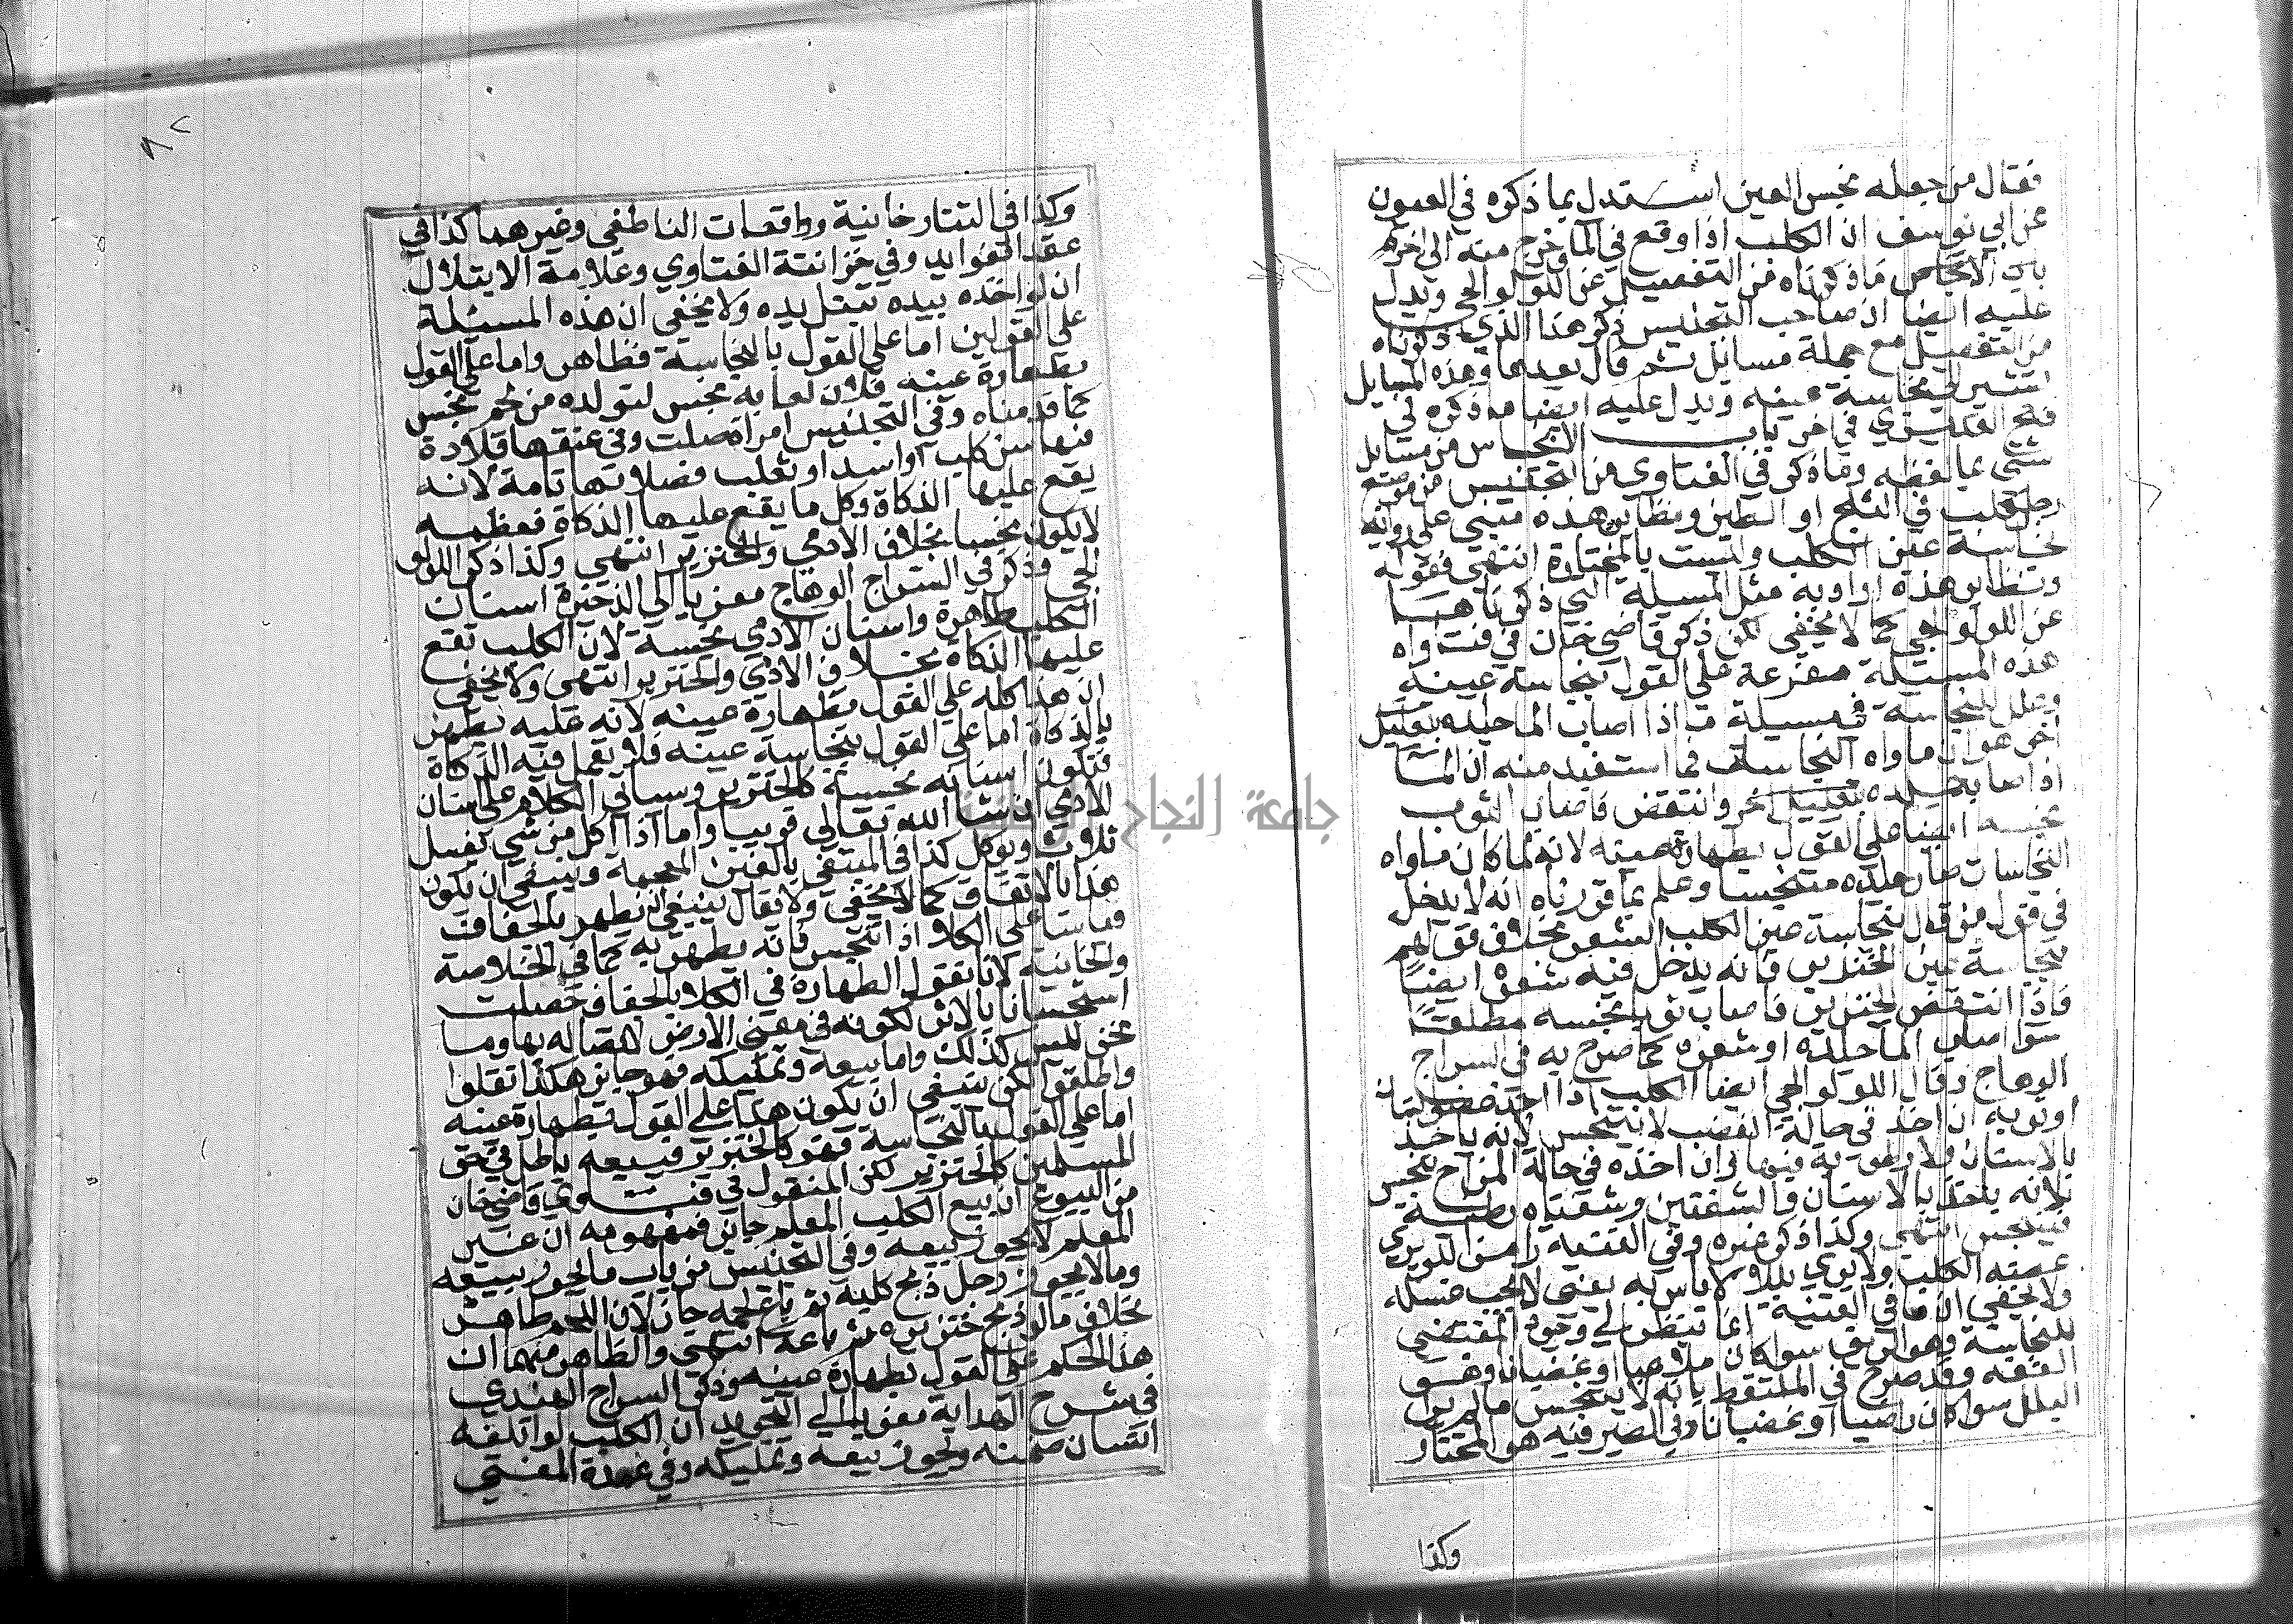 فقال من جعله نجس العين استدل بما ذكره في العيون
عن ابي يوسف ان الكلب اذا وقع في الما وخرج منه الى اخره
باب الانجاس ما ذكرناه من التفصيل عن اللولوالجي ويدل
عليه ايضا ان صاحب التجنيس ذكر هذا الذي ذكرناه
من التفصيل مع جملة مسائل ثم قال بعدها وهذه المسايل
تشير الى نجاسة عينه ويدل عليه ايضا ما ذكره في
فتح القدير في اخر باب الانجاس من مسايل
شتى بما لفظه وما ذكر في الفتاوى من التجنيس من موضع
رجل كلب في الثلج او الطين ونظاير هذه مبني على رواية
نجاسة عين الكلب وليست بالمختارة انتهى فقوله
ونظاير هذه اراد به مثل المسيلة التي ذكرناها
عن اللولوالجي كما لا يخفى لكن ذكر قاضي خان في فتاواه
هذه المسئلة مفرعة على القول بنجاسة عينه
وعلل للنجاسة في مسيلة ما اذا اصاب الما جلده بتعليل
اخر هو ان ماواه النجاسات فما استفيد منه ان الما
اذا اصاب جلده بتعليل اخر وانتفض فاصاب الثوب
نجسه ايضا على القول بطهارة عينه لانه لما كان ماواه
النجاسات صار جلده متنجسا وعلم بما قررناه انه لا يدخل
في قول من قال بنجاسة عين الكلب الشعر بخلاف قولهم
بنجاسة عين الخنزير فانه يدخل فيه شعره ايضا
فاذا انتفض الخنزير فاصاب ثوبا نجسه مطلقا
سوا اصاب الما جلده او شعره كما صرح به في السراج
الوهاج وقال اللولوالجي ايضا الكلب اذا اخذ عضو انسان
او ثوبه ان اخذ في حالة الغضب لا يتنجس لانه ياخذ
بالاسنان ولا رطوبة فيها وان اخذه في حالة المزاح ينجس
لانه ياخذ بالاسنان والشفتين وشفتاه رطبة
فيتنجس انتهى وكذا ذكر غيره وفي القنية رامزا للوبري
عضه الكلب ولا يرى بللا لا باس به يعني لا يجب غسله
ولا يخفى ان ما في القنية انما ينظر الى وجود المقتضي
للنجاسة وهو الريق سوا كان ملاعبا او غضبانا وهو
الفقه وقد صرح في الملتقط بانه لا يتنجس ما لم ير
البلل سوا كان راضيا او غضبانا وفي الصيرفيه هو المختار
وكذا
وكذا في التتارخانية وواقعات الناطفي وغيرهما كذا في
عقد الفوايد وفي خزانة الفتاوي وعلامة الابتلال
ان لو اخذه بيده تبتل يده ولا يخفى ان هذه المسئلة
على القولين اما على القول بالنجاسة فظاهر واما على القول
بطهارة عينه فلان لعابه نجس لتولده من لحم نجس
كما قدمناه وفي التجنيس امراة صلت وفي عنقها قلادة
فيها سن كلب او اسد او ثعلب فصلاتها تامة لانه
يقع عليها الذكاة وكل ما يقع عليها الذكاة فعظمه
لا يكون نجسا بخلاف الادمي والخنزير انتهى وكذا ذكر اللولو
الجي وذكر في السراج الوهاج معزيا الى الذخيرة اسنان
الكلب طاهرة واسنان الادمي نجسة لان الكلب تقع
عليها الذكاة بخلاف الادمي والخنزير انتهى ولا يخفى
ان هذا كله على القول بطهارة عينه لانه عليه يطهر
بالذكاة اما على القول بنجاسة عينه فلا تعمل فيه الذكاة
فتكون اسنانه نجسة كالخنزير وسياتي الكلام على اسنان
الادمي ان شا الله تعالى قريبا واما اذا اكل من شي يغسل
ثلاثا ويوكل كذا في المبتغى بالغين المعجمة وينبغي ان يكون
هذا بالاتفاق كما لا يخفى ولا يقال ينبغي ان يطهر بالجفاف
قياسا على الكلا اذا تنجس فانه يطهر به كما في الخلاصة
والخانية لانا نقول الطهارة في الكلا بالجفاف حصلت
استحسانا بالاثر لكونه في معنى الارض لاتصاله بها وما
نحن ليس كذلك واما بيعه وتمليكه فهو جايز هكذا نقلوا
واطلقوا لكن ينبغي ان يكون هذا على القول بطهارة عينه
اما على القول بالنجاسة فهو كالخنزير فبيعه باطل في حق
المسلمين كالخنزير لكن المنقول في فتاوي قاضي خان
من البيوع ان بيع الكلب المعلم جايز فمفهومه ان غير
المعلم لا يجوز بيعه وفي التجنيس من باب ما يجوز بيعه
وما لا يجوز رجل ذبح كلبه ثم باع لحمه جاز لان اللحم طاهر
بخلاف ما لو ذبح خنزيره ثم باعه انتهى والظاهر منهما ان
هذا الحكم على القول بطهارة عينه وذكر السراج الهندي
في شرح الهداية معزيا الى التجريد ان الكلب لو اتلفه
انسان ضمنه ويجوز بيعه وتمليكه وفي عمدة المفتي
جامعة النجاح الوطنية